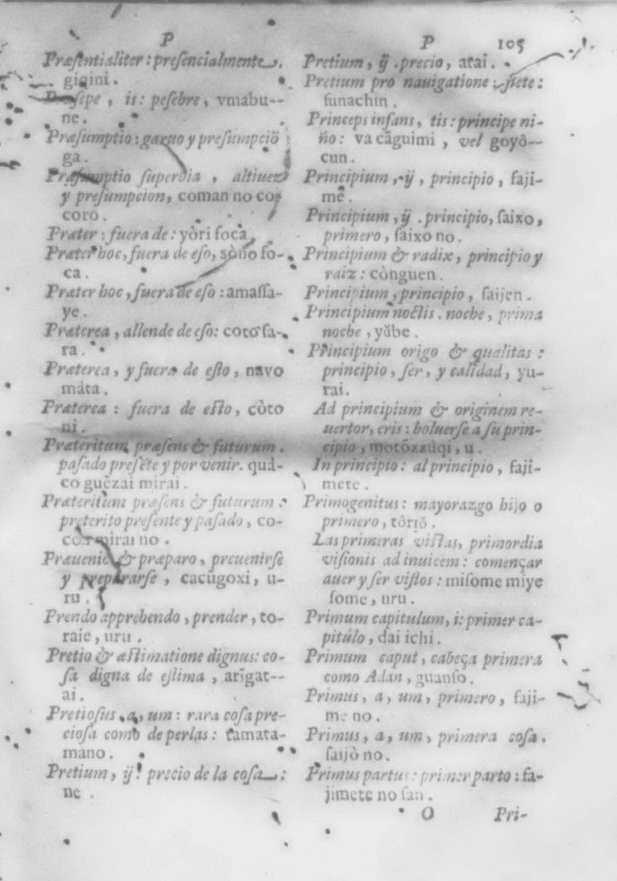 P
Præsentialiter: presencialmente.
giqini.
Præsepe, is: pesebre, vmabu--
ne.
Præsumptio: garuo y presumpciõ
ga.
Præsumptio superbia, altiuez
y presumpcion, coman no co
coro.
Præter: fuera de: yòri foca.
Præter hoc, fuera de eso, sòno fo-
ca.
Præter hoc, fuera de eso: amassa-
ye.
Præterea, allende de eso: coto sa-
ra.
Præterea, y fuera de esto, navo
máta.
Præterea: fuera de esto, còto
ni.
Præteritum præsens & futurum.
pasado presẽte y por venir. quá-
co guẽzai mirai.
Præteritum præsens & futurum:
preterito presente y pasado, co-
co mirai no.
Præuenio & præparo, preuenirse
y prepararse, cacùgoxi, u-
ru.
Prendo apprehendo, prender, to-
raie, uru.
Pretio & æstimatione dignus: co-
sa digna de estima, arigat--
ai.
Pretiosus, a, um: rara cosa pre-
ciosa como de perlas: tamata-
mano.
Pretium, ÿ: precio de la cosa:
ne.
P 105
Pretium, ÿ. precio, atai.
Pretium pro nauigatione: flete:
funachin.
Princeps infans, tis: principe ni-
ño: va cãguimi, vel goyô--
cun.
Principium, ÿ, principio, faji-
mẽ.
Principium, ÿ. principio, saixo,
primero, saixo no.
Principium & radix, principio y
raiz: cònguen.
Principium, principio, saijen.
Principium noctis. noche, prima
noche, yǎbe.
Principium origo & qualitas:
principio, ser, y calidad, yu-
rai.
Ad principium & originem re-
uertor, eris: boluerse a su prin-
cipio, motõzzuqi, u.
In principio: al principio, faji-
mete.
Primogenitus: mayorazgo hijo o
primero, tôriǒ.
Las primeras vistas, primordia
visionis ad inuicem: començar
auer y ser vistos: misome miye
some, uru.
Primum capitulum, i: primer ca-
pitúlo, dai ichi.
Primum caput, cabeça primera
como Adan, guanso.
Primus, a, um, primero, faji-
me no.
Primus, a, um, primera cosa.
saijò no.
Primus partus: primer parto: fa-
jimete no san.
O Pri-